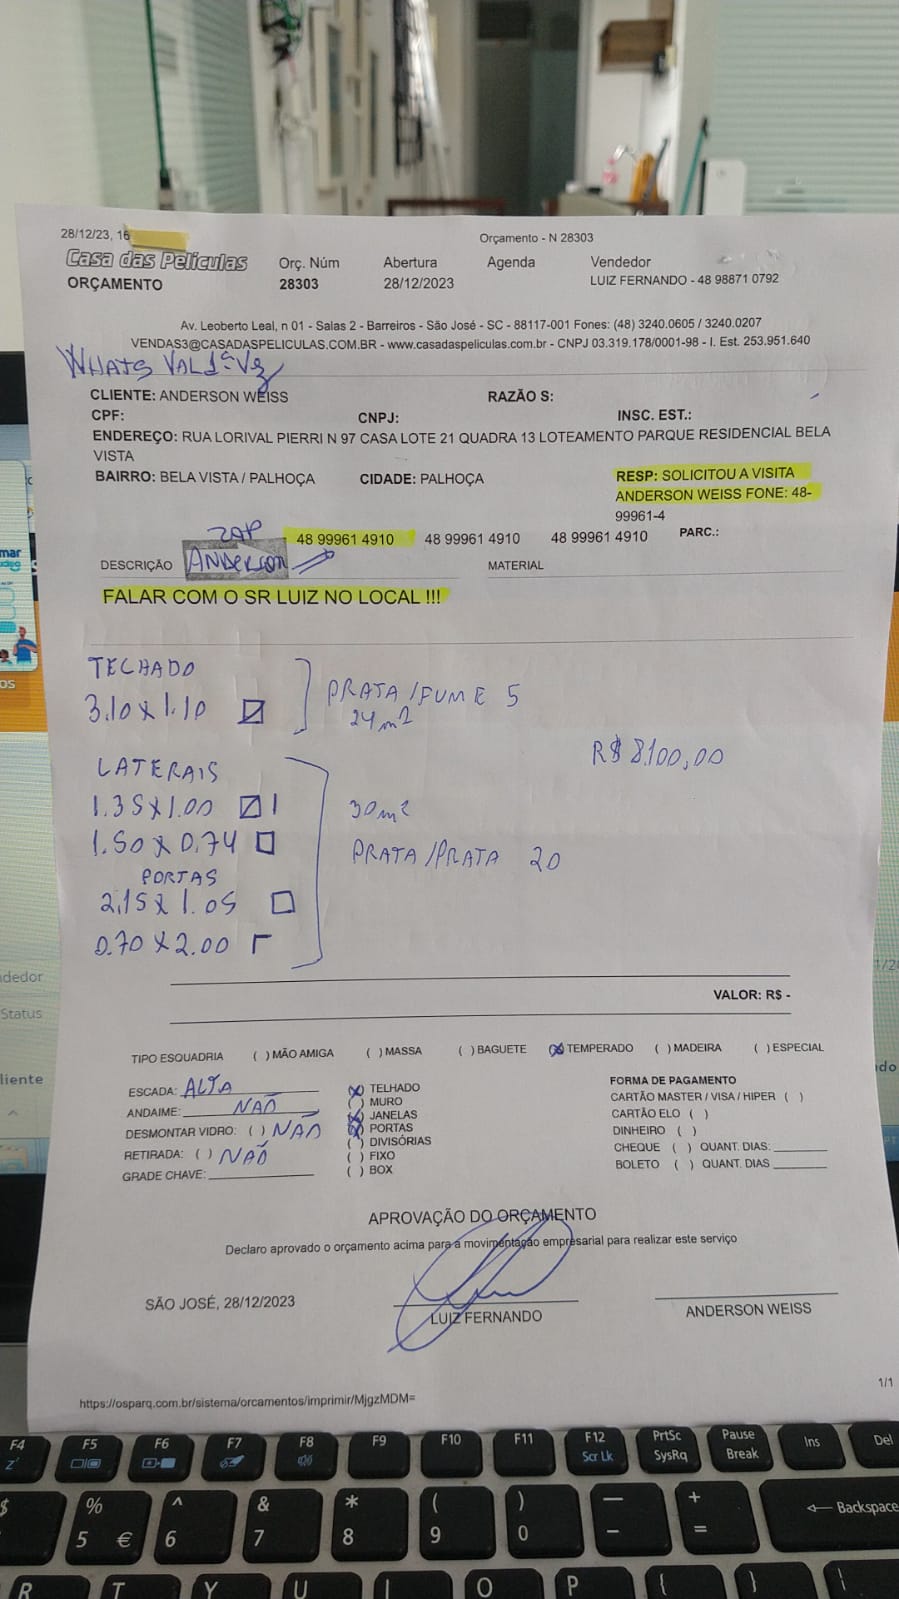 28/12/23, 16
Orçamento - N 28303
Casa das Películas
ORÇAMENTO
Orç. Núm
28303
Abertura
28/12/2023
Agenda
Vendedor
LUIZ FERNANDO - 48 98871 0792
Av. Leoberto Leal, n 01 - Salas 2 - Barreiros - São José - SC - 88117-001 Fones: (48) 3240.0605 / 3240.0207
VENDAS3@CASADASPELICULAS.COM.BR - www.casadaspeliculas.com.br - CNPJ 03.319.178/0001-98 - I. Est. 253.951.640
WHATS
CLIENTE: ANDERSON WEISS RAZÃO S:
CPF: CNPJ: INSC. EST.:
ENDEREÇO: RUA LORIVAL PIERRI N 97 CASA LOTE 21 QUADRA 13 LOTEAMENTO PARQUE RESIDENCIAL BELA
VISTA
BAIRRO: BELA VISTA / PALHOÇA CIDADE: PALHOÇA RESP: SOLICITOU A VISITA
ANDERSON WEISS FONE: 48-
99961-4
ZAP 48 99961 4910 48 99961 4910 48 99961 4910 PARC.:
DESCRIÇÃO ANDERSON MATERIAL
FALAR COM O SR LUIZ NO LOCAL !!!
TECHADO
3.10 x 1.10
PRATA/FUME 5
24m²
R$ 8.100,00
LATERAIS
1.35 x 1.00
1.50 x 0.74
PORTAS
2.15 x 1.05
0.70 x 2.00
30m²
PRATA/PRATA 20
VALOR: R$ -
TIPO ESQUADRIA ( ) MÃO AMIGA ( ) MASSA ( ) BAGUETE (X) TEMPERADO ( ) MADEIRA ( ) ESPECIAL
ESCADA: ALTA
ANDAIME: NÃO
DESMONTAR VIDRO: ( ) NÃO
RETIRADA: ( ) NÃO
GRADE CHAVE:
(X) TELHADO
( ) MURO
(X) JANELAS
(X) PORTAS
( ) DIVISÓRIAS
( ) FIXO
( ) BOX
FORMA DE PAGAMENTO
CARTÃO MASTER / VISA / HIPER ( )
CARTÃO ELO ( )
DINHEIRO ( )
CHEQUE ( ) QUANT. DIAS:
BOLETO ( ) QUANT. DIAS
APROVAÇÃO DO ORÇAMENTO
Declaro aprovado o orçamento acima para a movimentação empresarial para realizar este serviço
SÃO JOSÉ, 28/12/2023
LUIZ FERNANDO
ANDERSON WEISS
1/1
https://osparq.com.br/sistema/orcamentos/imprimir/MjgzMDM=
F4 F5 F6 F7 F8 F9 F10 F11 F12 PrtSc Pause Ins Del
Scr Lk SysRq Break
$ % ^ & * ( ) — + Backspace
5 € 6 7 8 9 0 - =
R T Y U I O P { } \